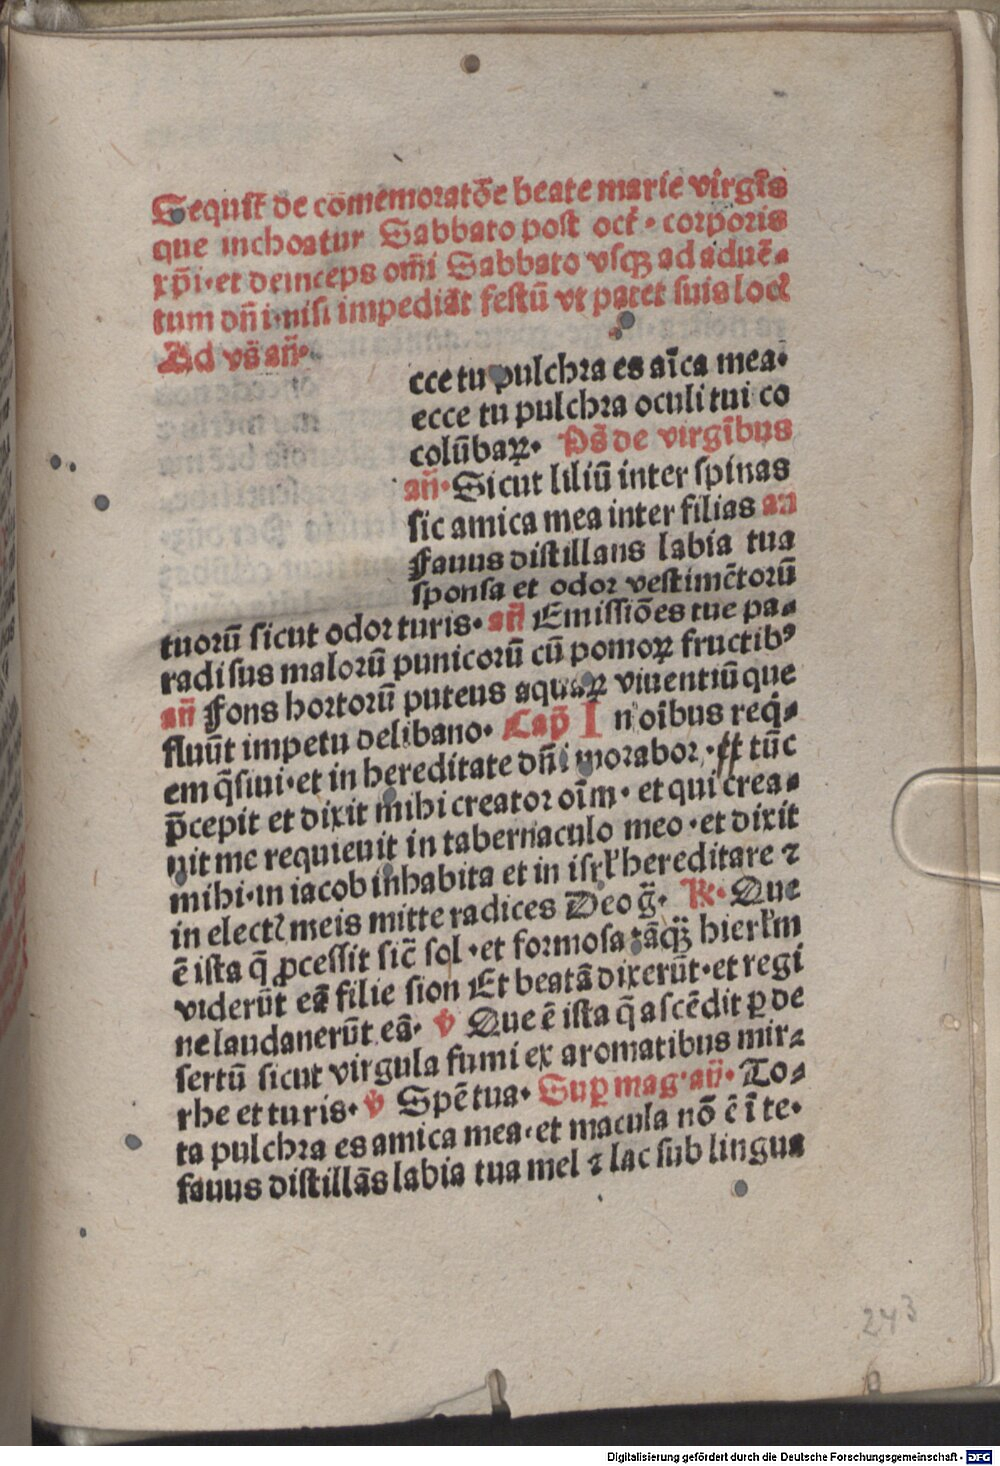 Sequit̃ de cōmemoratōe beate marie virgīs
que inchoatur Sabbato post oct̃ · corporis
xp̄i · et deinceps om̄i Sabbato vsqꝫ ad aduē⸗
tum dn̄i · nisi impediāt festū vt patet suis locꝭ
Ad vs̄ an̄ ·
cce tu pulchra es aīca mea ·
ecce tu pulchra oculi tui co
colūbaꝝ · Ps̄ de virgībus
an̄ · Sicut liliū inter spinas
sic amica mea inter filias an
Fauus distillans labia tua
sponsa et odor vestimētorū
tuorū sicut odor turis · an̄ Emissiōes tue pa⸗
radisus malorū punicorū cū pomoꝝ fructibꝰ
an̄ Fons hortorū puteus aquaꝝ viuentiū que
fluūt impetu de libano · Cap̄ In oībus req̇⸗
em q̄siui · et in hereditate dn̄i morabor · Et tūc
p̄cepit et dixit mihi creator oīm · et qui crea⸗
uit me requieuit in tabernaculo meo · et dixit
mihi · in iacob inhabita et in isrl̄ hereditare ⁊
in electꝭ meis mitte radices Deo g̃ · ℟ · Que
ē ista q̄ ꝓcessit sic̄ sol · et formosa tāqꝫ hierl̄m
viderūt eā filie sion Et beatā dixerūt · et regi
ne laudauerūt eā · ℣ Que ē ista q̄ ascēdit ꝑ de
sertū sicut virgula fumi ex aromatibus mir⸗
rhe et turis · ℣ Spē tua · Suꝑ mag · an̄ · To⸗
ta pulchra es amica mea · et macula nō ē ī te ·
fauus distillās labia tua mel ⁊ lac sub lingua
243
Digitalisierung gefördert durch die Deutsche Forschungsgemeinschaft - DFG